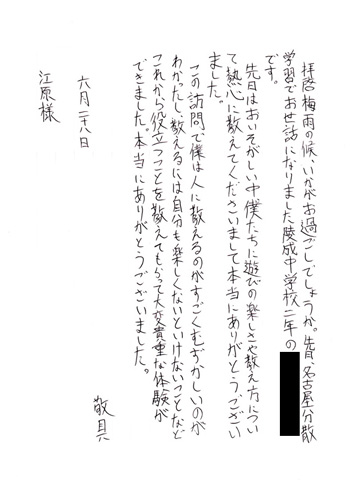 拝啓 梅雨の候いかがお過ごしでしょうか。先日、名古屋分散
学習でお世話になりました陵成中学校二年の
です。
先日はおいそがしい中僕たちに遊びの楽しさや教え方につい
て熱心に教えてくださいまして本当にありがとうござい
ました。
この訪問で僕は人に教えるのがすごくむずかしいのが
わかったし、教えるには自分も楽しくないといけないことなど
これから役立つことを教えてもらって大変貴重な体験が
できました。本当にありがとうございました。
敬具
六月二十八日
江原様